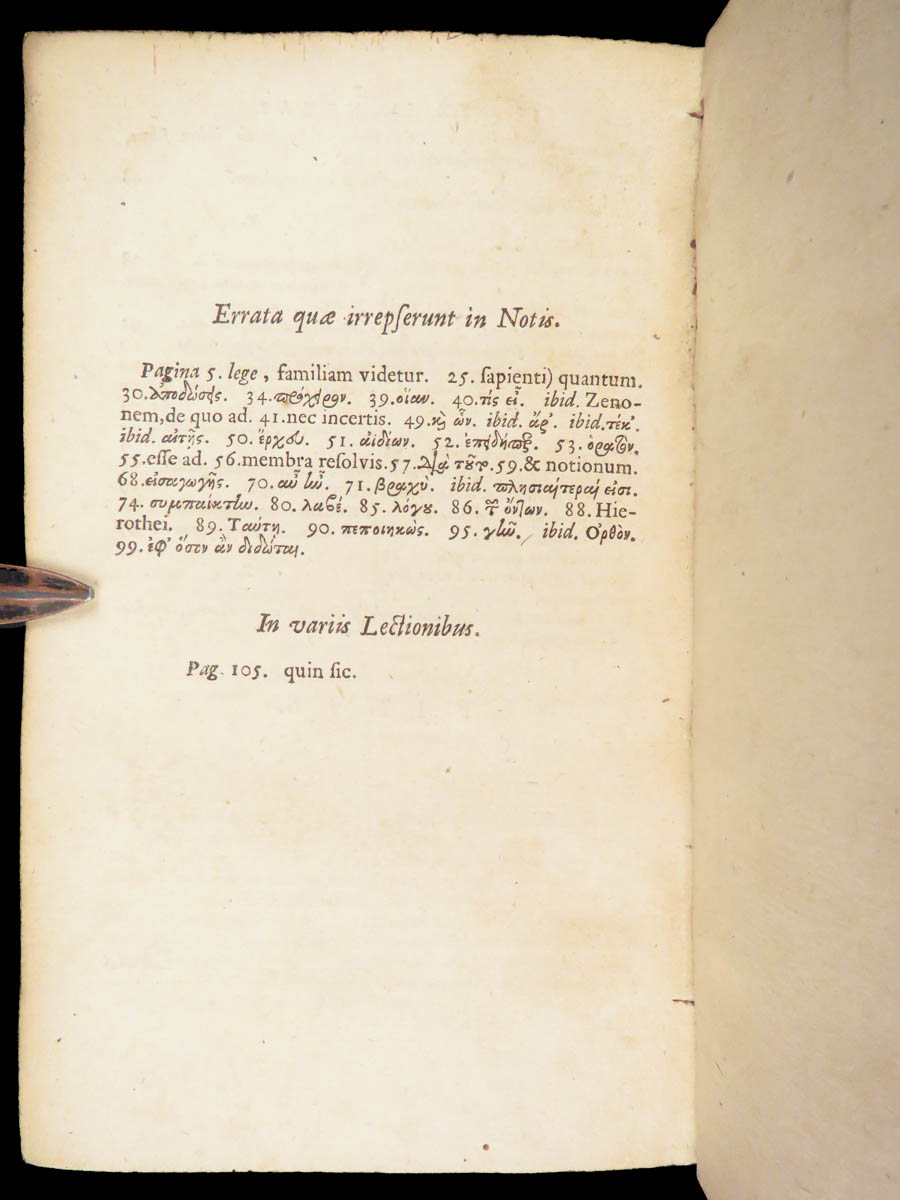 Errata quæ irrepſerunt in Notis.
Pagina 5. lege, familiam videtur. 25. ſapienti) quantum.
30. ἀποδώσεις. 34. πρόχειρον. 39. οἵαν. 40. τίς εἶ. ibid. Zeno-
nem, de quo ad. 41. nec incertis. 49. ϗ ὧν. ibid. ibid.
ibid. αὐτῆς. 50. ἔρχου. 51. ἀϊδίων. 52. 53.
55. eſſe ad. 56. membra reſolvis. 57. Διὰ τοῦτο. 59. & notionum.
68. εἰσαγωγῆς. 70. 71. βραχὺ. ibid. πλησιαίτεραί εἰσι.
74. συμπαίκτην. 80. λαβέ. 85. λόγου. 86. τῶν ὄντων. 88. Hie-
rothei. 89. Ταύτῃ. 90. πεποιηκὼς. 95. ibid. Ὀρθὸν.
99. ἐφ' ὅσον ἂν διδῶται.
In variis Lectionibus.
Pag. 105. quin ſic.